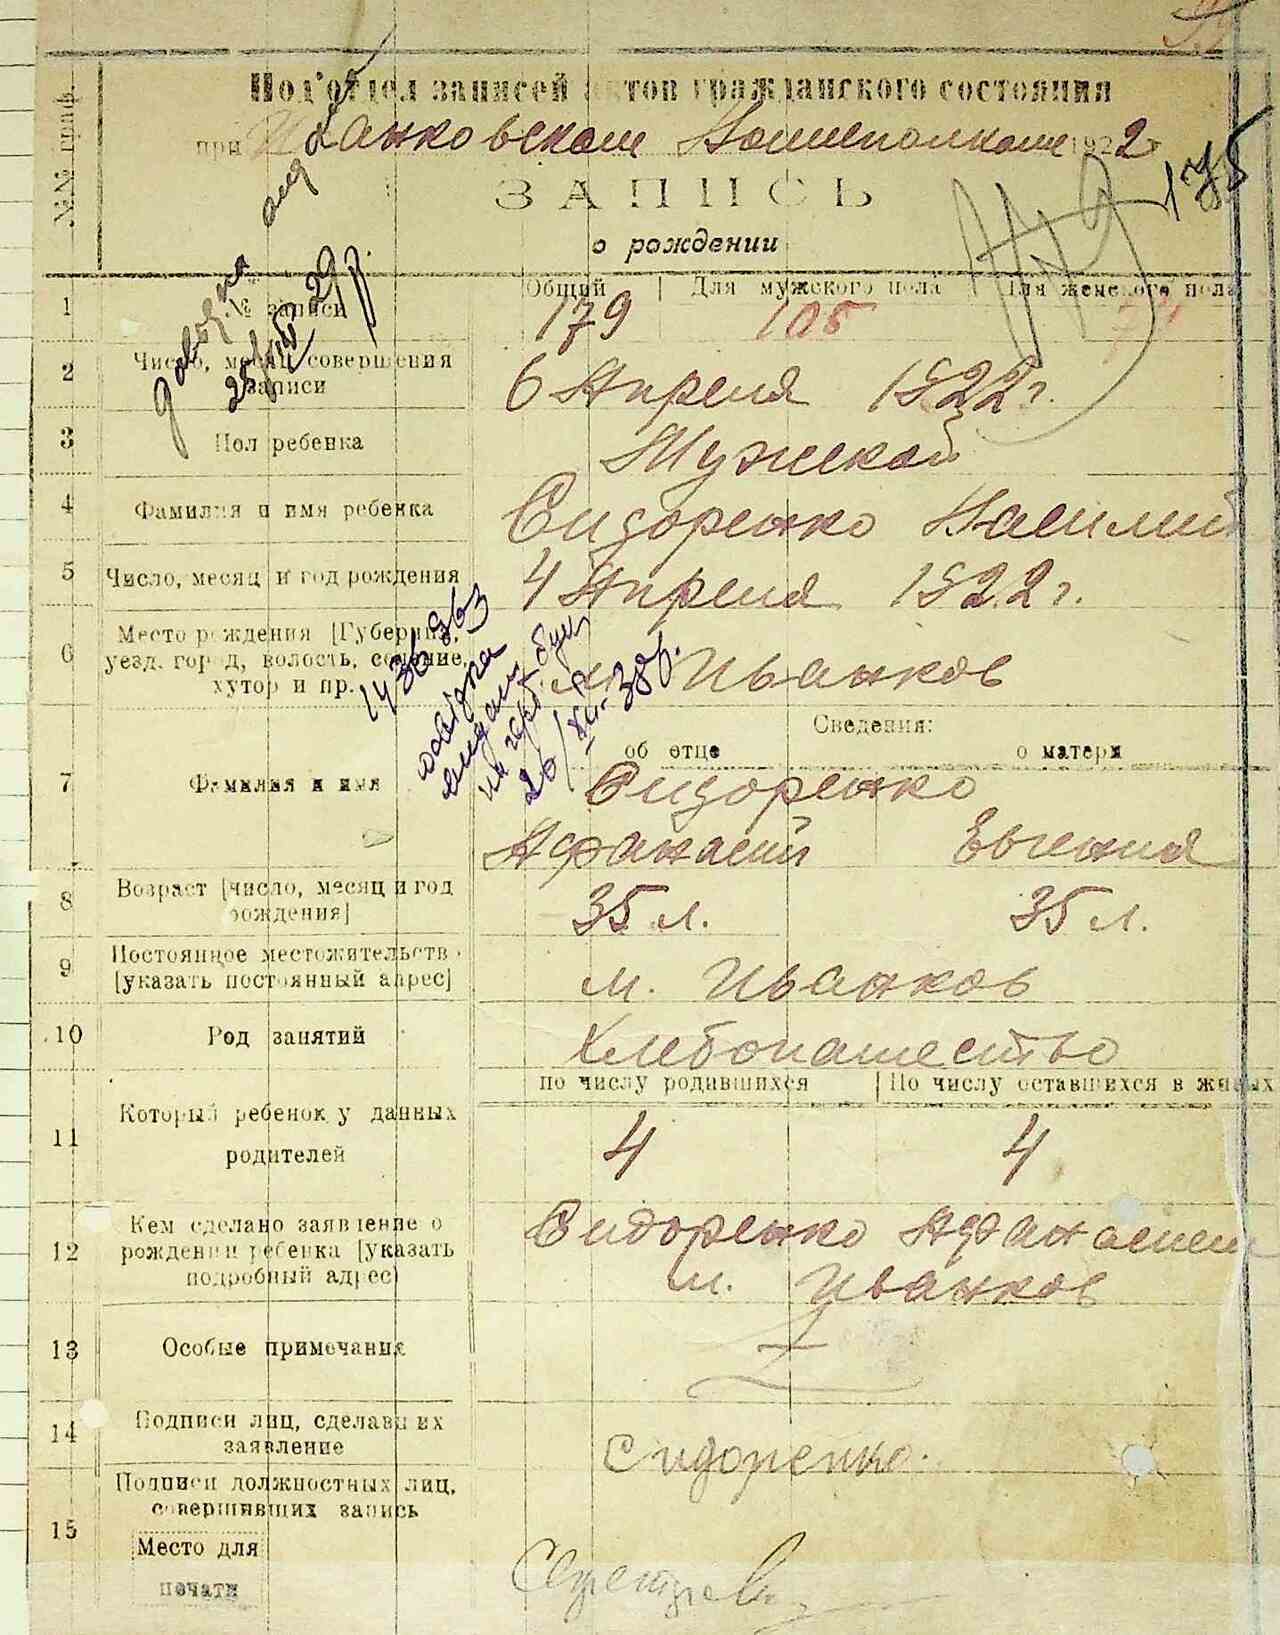 Под'отдел записей актов гражданского состояния
при Иванковском Волисполкоме 1922
175
ЗАПИСЬ
о рождении
№№ граф.
Общий | Для мужского пола | Для женского пола
1 № записи 179 105
2 Число, месяц совершения записи 6 Апреля 1922 г.
3 Пол ребенка Мужской
4 Фамилия и имя ребенка Сидоренко Василий
5 Число, месяц и год рождения 4 Апреля 1922 г.
6 Место рождения [Губерния, уезд, город, волость, селение, хутор и пр. м. Иванков
25/ 29 р.
1436363
видана
26/XII-33р.
Сведения:
об отце о матери
7 Фамилия и имя Сидоренко
Афанасий Евгения
8 Возраст [число, месяц и год рождения] 35 л. 35 л.
9 Постоянное местожительств [указать постоянный адрес] м. Иванков
10 Род занятий Хлебопашество
по числу родившихся | По числу оставшихся в живых
11 Который ребенок у данных родителей 4 4
12 Кем сделано заявление о рождении ребенка [указать подробный адрес) Сидоренко Афанасием
м. Иванков
13 Особые примечания
14 Подписи лиц, сделавших заявление Сидоренко.
15 Подписи должностных лиц, совершивших запись
Место для печати